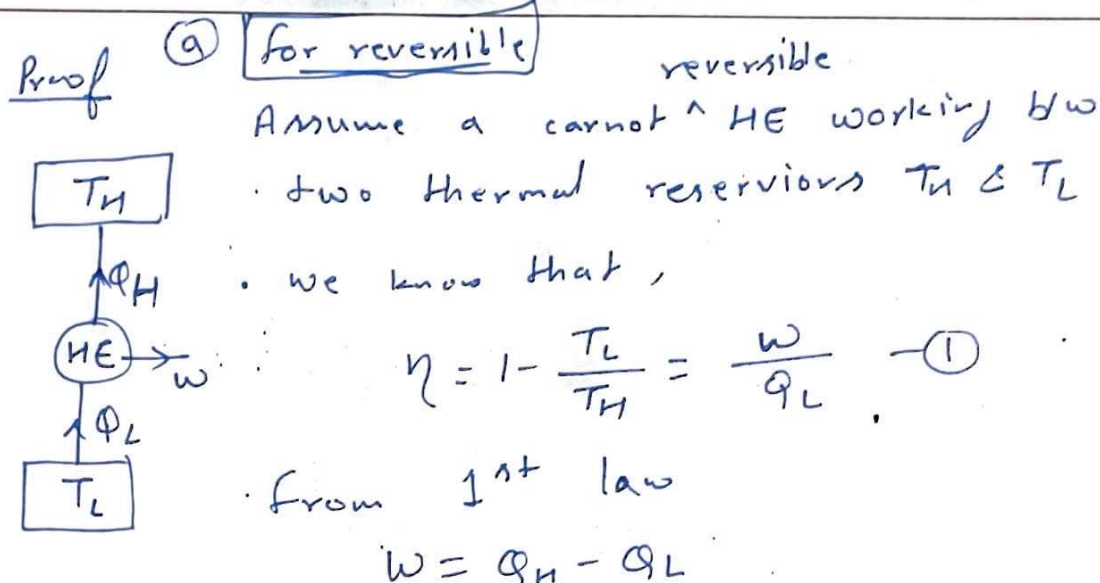 Proof ⓐ for reversible
reversible
Assume a carnot ^ HE working b/w
· two thermal reserviors T_H & T_L
T_H
Q_H
· we know that,
HE → w
η = 1 - T_L/T_H = w/Q_L —①
Q_L
T_L
· from 1st law
W = Q_H - Q_L